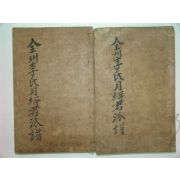 全州李氏月君派譜
全州李氏月君派譜